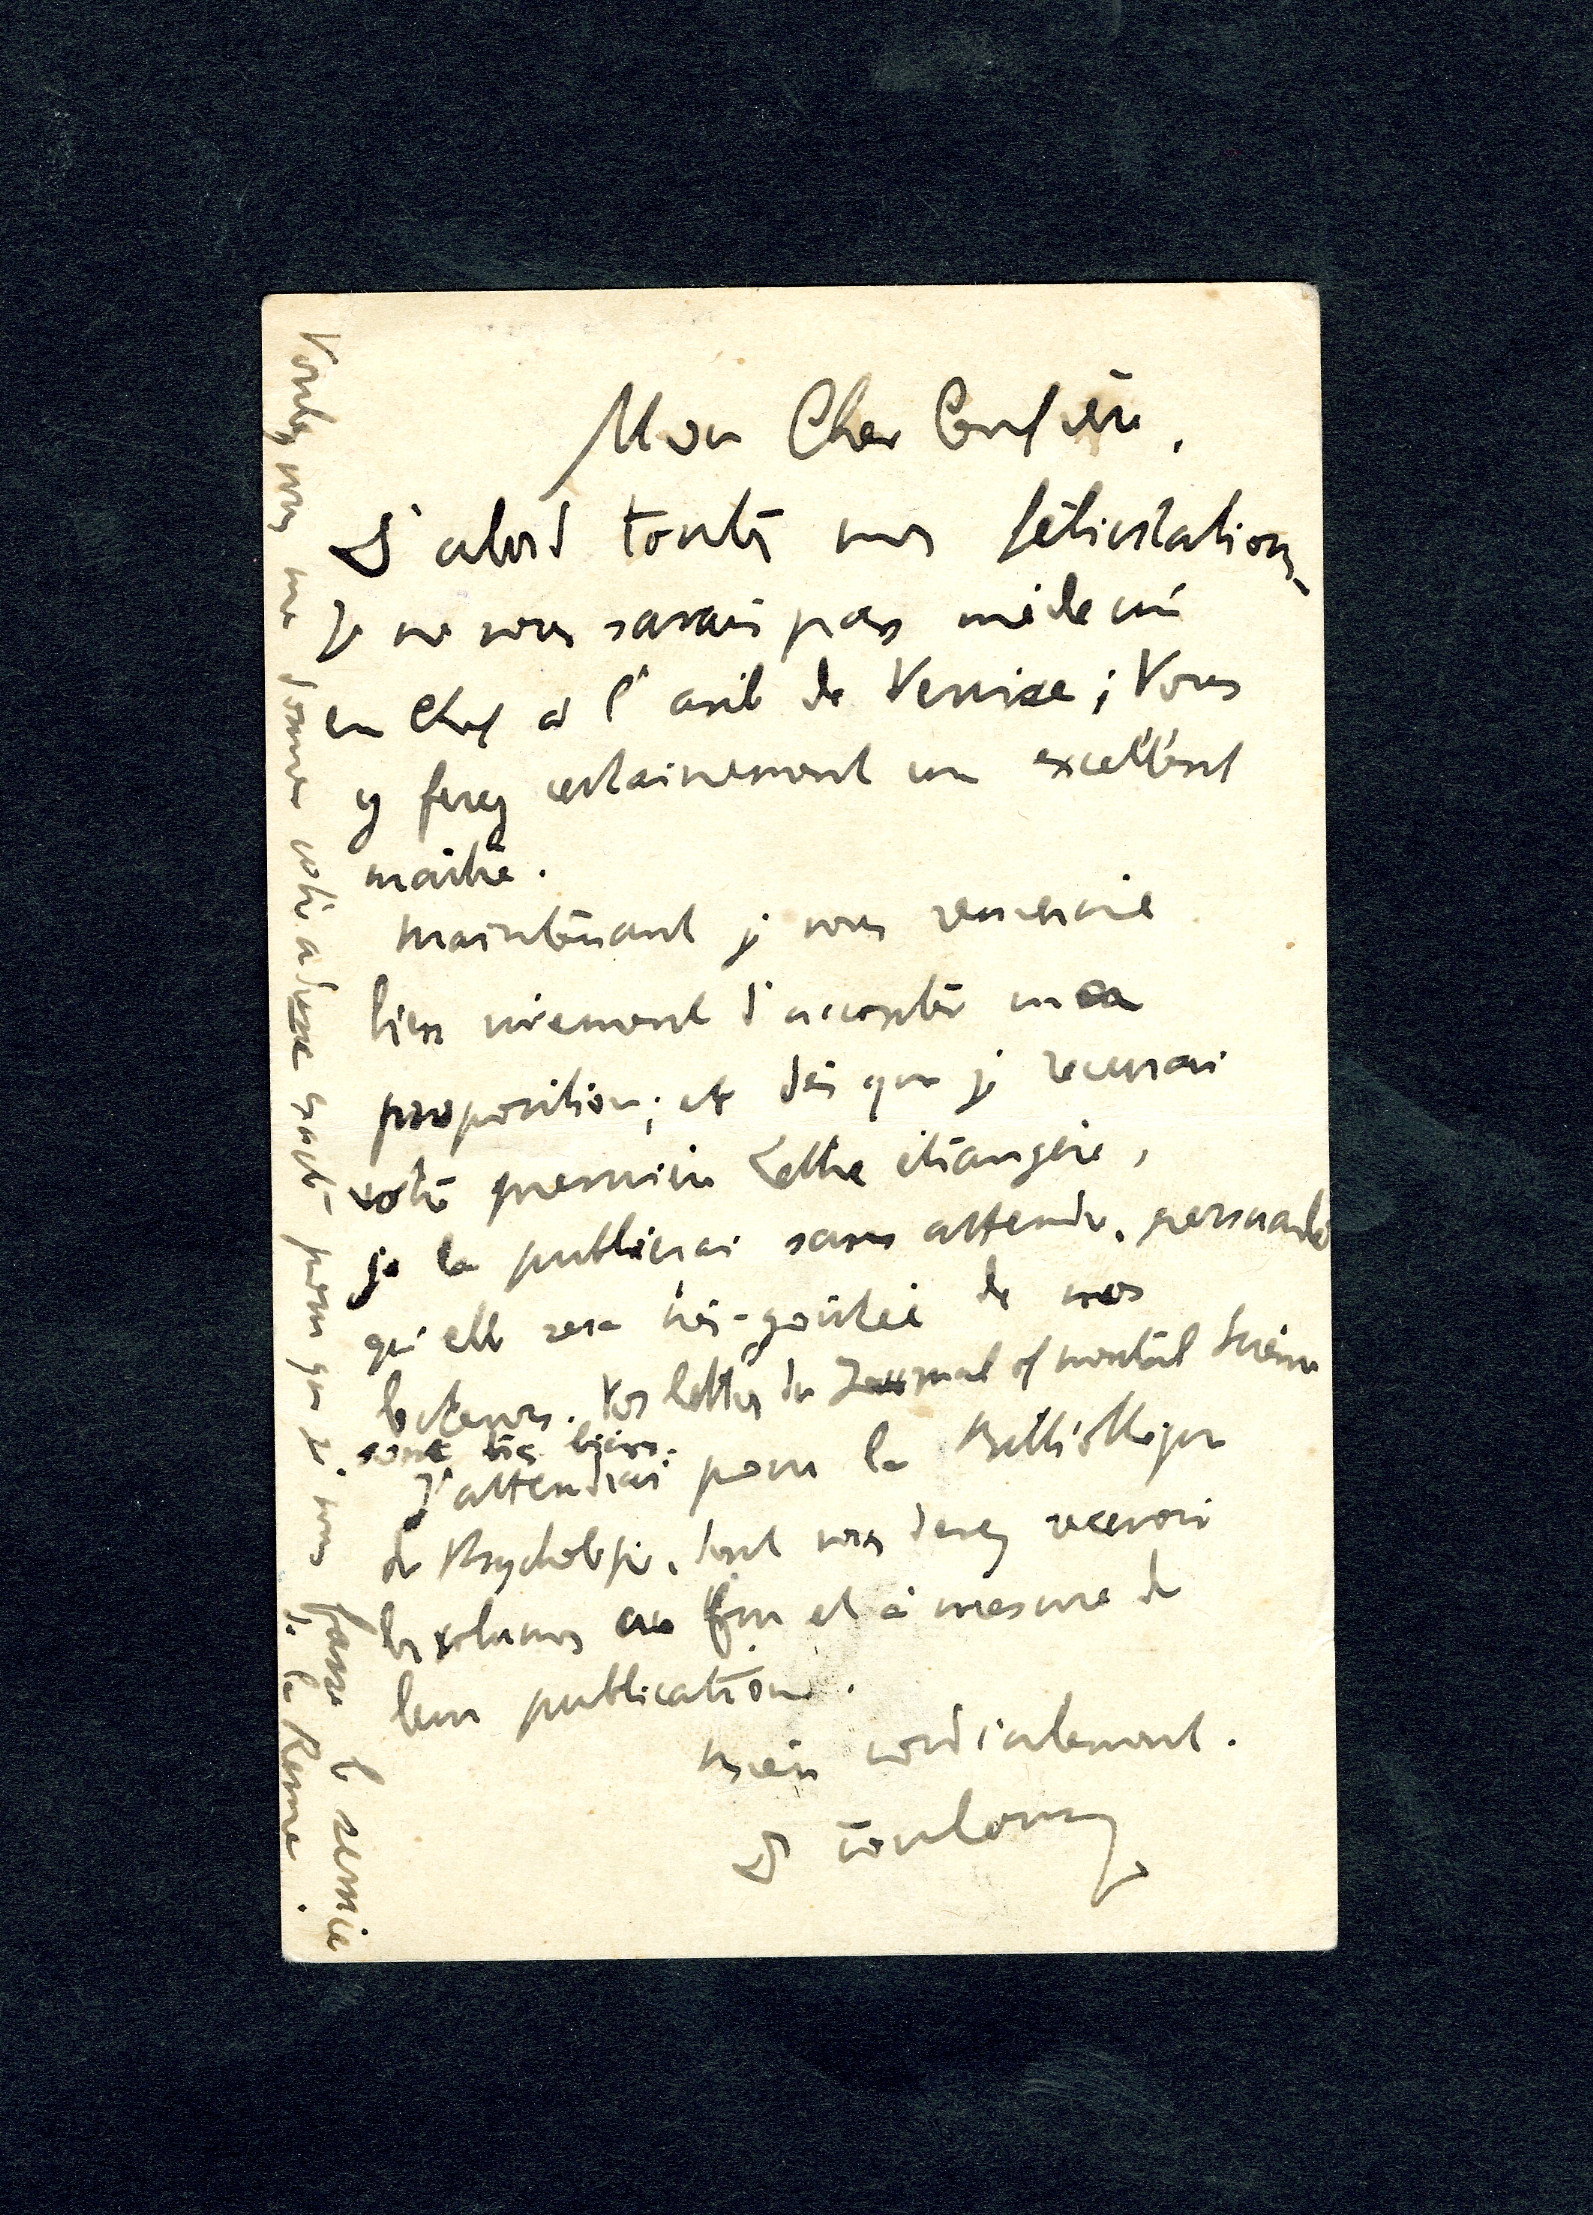 Mon Cher Confrère,
D'abord toutes mes félicitations.
Je ne vous savais pas médecin
en Chef à l'asile de Venise ; Vous
y ferez certainement un excellent
maître.
Maintenant je vous remercie
bien vivement d'accepter ma
proposition ; et dès que je recevrai
votre première Lettre étrangère,
je la publierai sans attendre, persuadé
qu'elle sera très-goûtée de nos
lecteurs. Vos lettres du Journal of mental Science
sont très bien.
J'attendrai pour la Bibliothèque
de Psychologie, dont vous devez recevoir
les volumes au fur et à mesure de
leur publication.
Bien cordialement.
Dr Toulouse
Voulez vous me donner votre adresse exacte pour que je vous fasse le service
de la Revue.